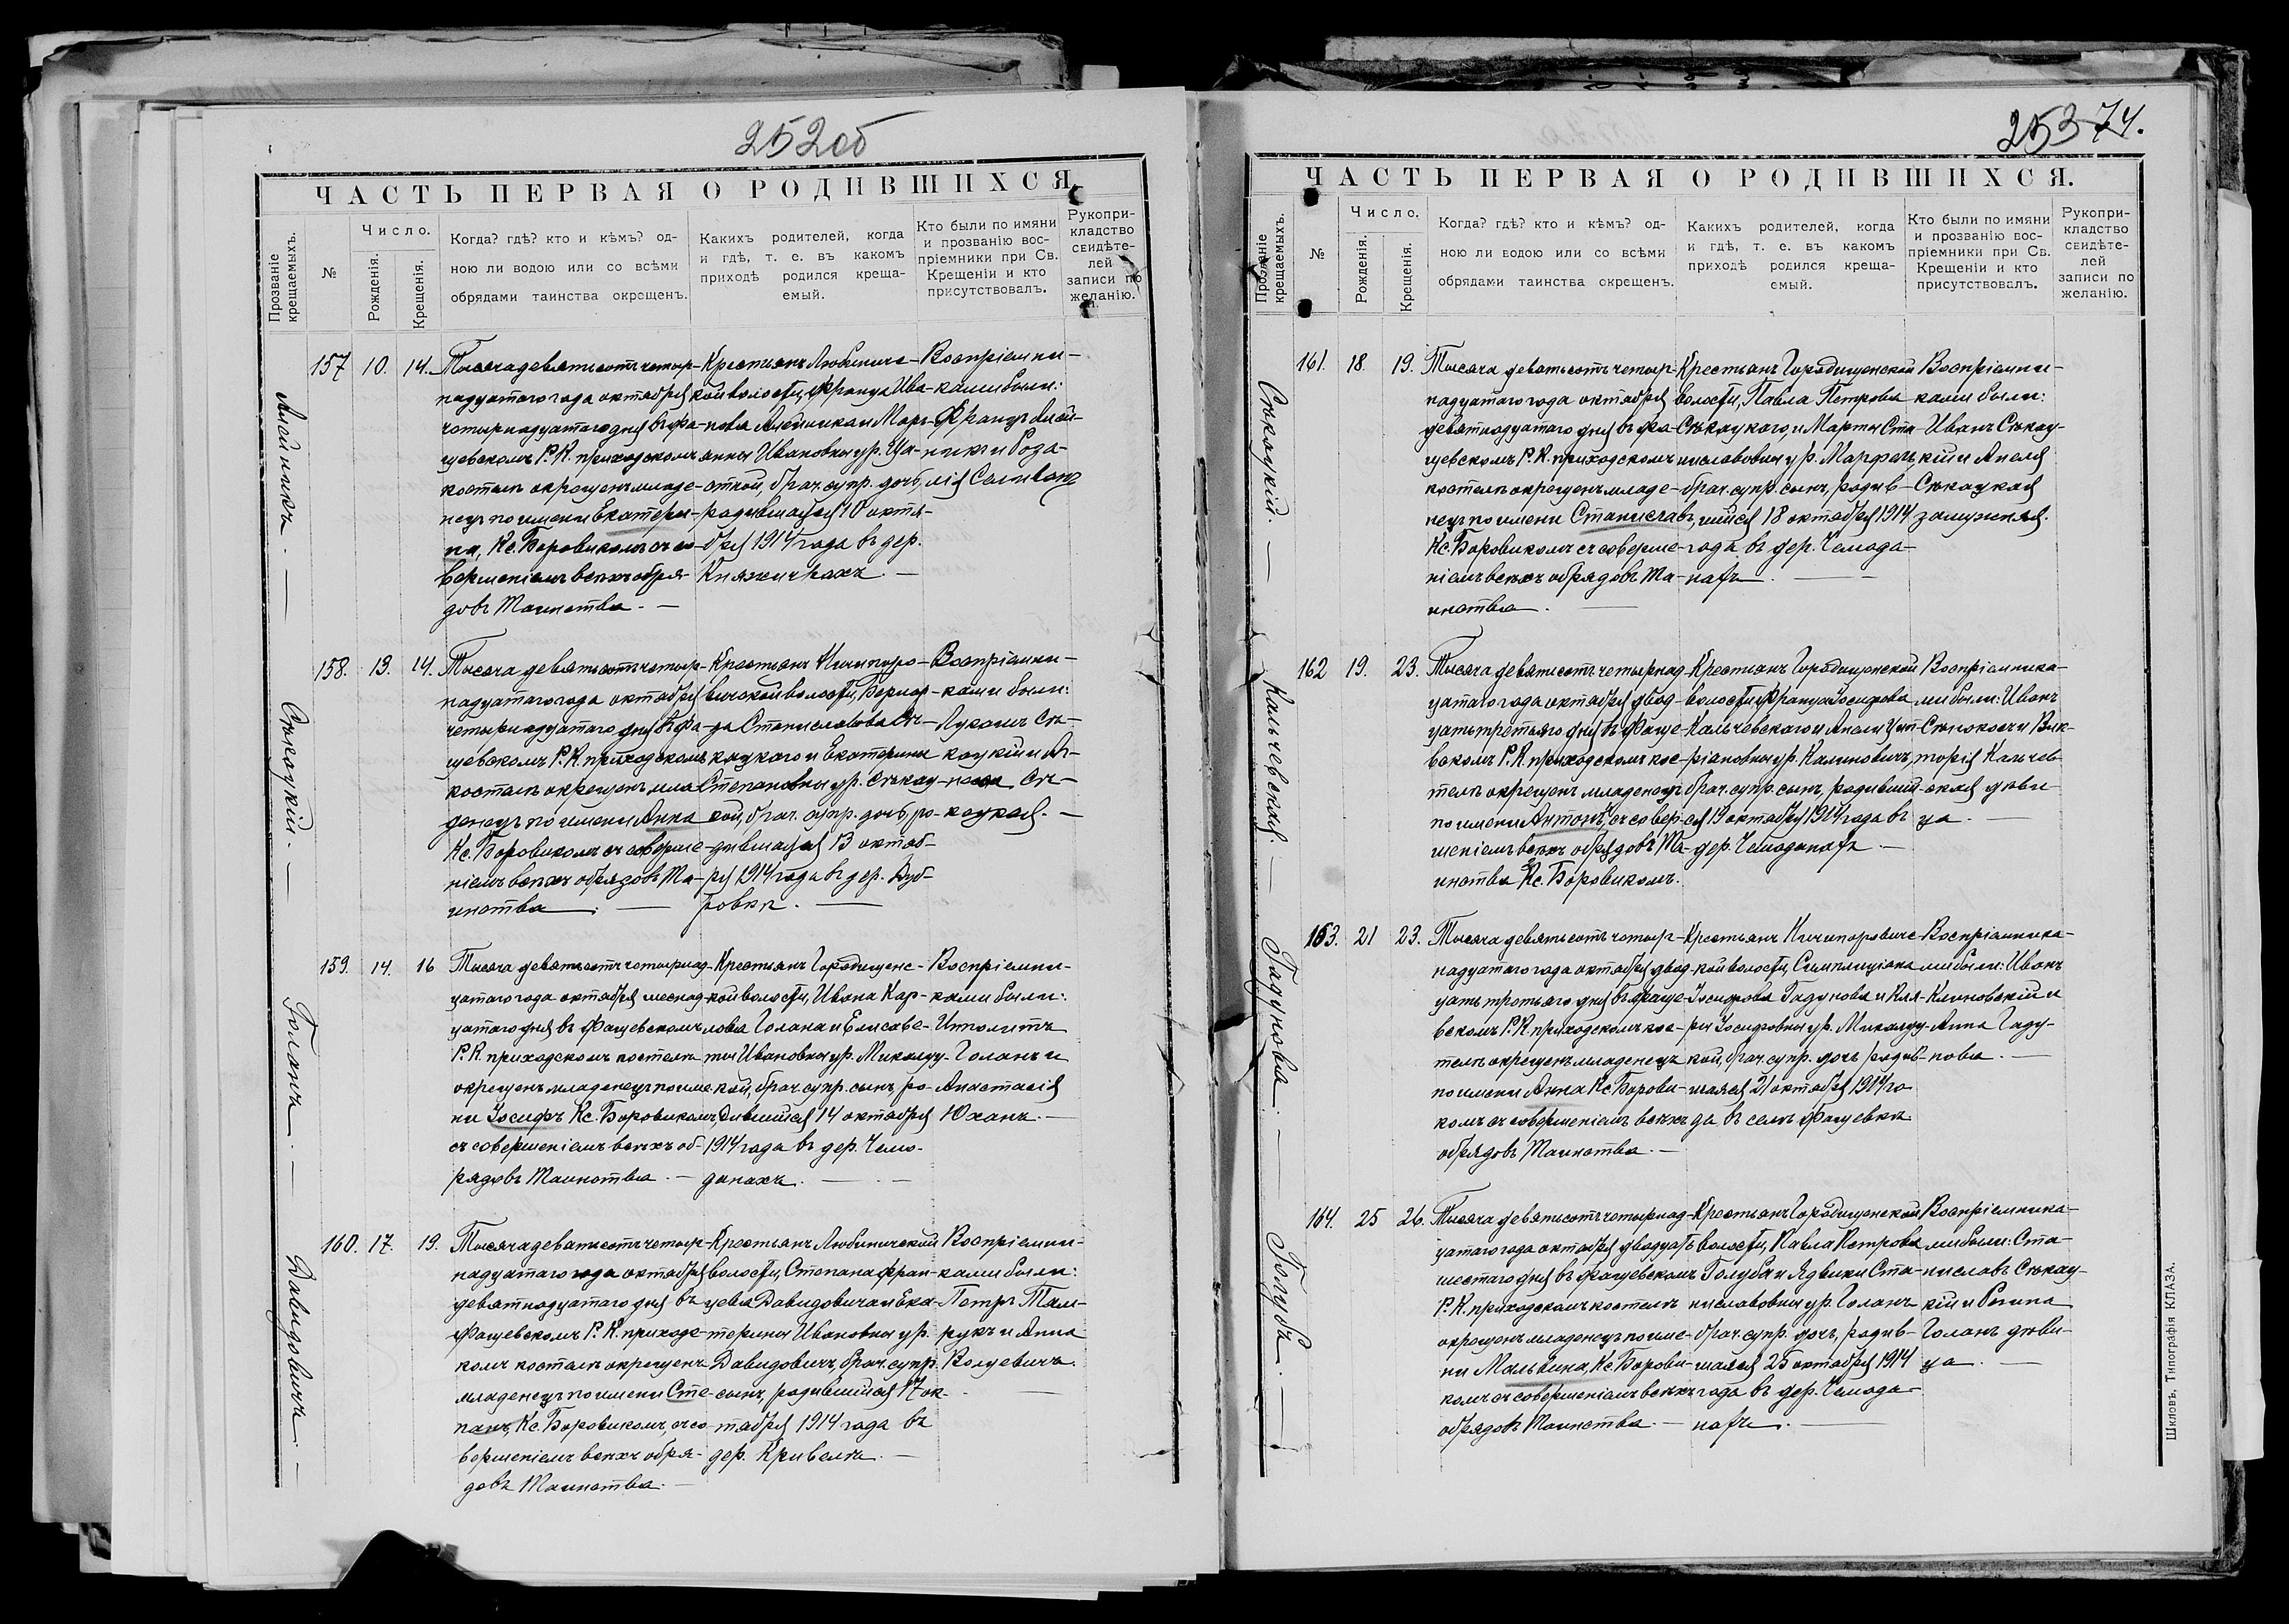 252об
ЧАСТЬ ПЕРВАЯ О РОДИВШИХСЯ.
Прозваніе крещаемыхъ.
№
Число.
Рожденія.
Крещенія.
Когда? гдѣ? кто и кѣмъ? од-
ною ли водою или со всѣми
обрядами таинства окрещенъ.
Какихъ родителей, когда
и гдѣ, т. е. въ какомъ
приходѣ родился креща-
емый.
Кто были по имяни
и прозванію вос-
пріемники при Св.
Крещеніи и кто
присутствовалъ.
Рукопри-
кладство
свидѣте-
лей
записи по
желанію.
157
10.
14.
Тысяча девятьсотъ четыр-
надцатого года октября
четырнадцатого дня въ Фа-
щевскомъ Р. К. приходскомъ
костелѣ окрещенъ младе-
нецъ по имени Екатери-
на, Кс. Боровикомъ съ со-
вершеніемъ всѣхъ обря-
довъ Таинства. —
Крестьянъ Любинич-
ской волости, Франца Ива-
нова Алейника и Марі-
анны Ивановны ур.
брач. супр. дочь,
родившаяся 10 октя-
бря 1914 года въ дер.
Княжицахъ. —
Воспріемни-
ками были:
Францъ Алей-
никъ и Роза-
лія
158.
13.
14.
Тысяча девятьсотъ четыр-
надцатого года октября
четырнадцатого дня въ Фа-
щевскомъ Р. К. приходскомъ
костелѣ окрещенъ мла-
денецъ по имени Анна
Кс. Боровикомъ съ соверше-
ніемъ всѣхъ обрядовъ Та-
инства. —
Крестьянъ Ничипоро-
вичской волости, Бернар-
да Станиславова Сѣ-
кацкаго и Екатерины
Степановны ур. Сѣкац-
кой, брач. супр. дочь, ро-
дившаяся 13 октяб-
ря 1914 года въ дер. Дуб-
ровкѣ. —
Воспріемни-
ками были:
Лукашъ Сѣ-
кацкій и
Сѣ-
кацкая. —
159.
14.
16
Тысяча девятьсотъ четырнад-
цатого года октября шеснад-
цатого дня въ Фащевскомъ
Р. К. приходскомъ костелѣ
окрещенъ младенецъ по име-
ни Іосифъ Кс. Боровикомъ,
съ совершеніемъ всѣхъ об-
рядовъ Таинства. —
Крестьянъ Городищенс-
кой волости, Ивана Кар-
лова Голана и Елисаве-
ты Ивановны ур. Микалуц-
кой, брач. супр. сынъ, ро-
дившійся 14 октября
1914 года въ дер. Чемо-
данахъ. —
Воспріемни-
ками были:
Ипполитъ
Голанъ и
Анастасія
Юханъ. —
160.
17.
19.
Тысяча девятьсотъ четыр-
надцатого года октября
девятнадцатого дня въ
Фащевскомъ Р. К. приходс-
комъ костелѣ окрещенъ
младенецъ по имени Сте-
панъ, Кс. Боровикомъ, съ со-
вершеніемъ всѣхъ обря-
довъ Таинства. —
Крестьянъ Любиничской
волости, Степана Фран-
цева Давидовича и Ека-
терины Ивановны ур.
Давидовичъ, брач. супр.
сынъ, родившійся 17 ок-
тября 1914 года въ
дер. Кривелѣ. —
Воспріемни-
ками были:
Петръ
и Анна
Волуевичъ.
Алейникъ. —
Сѣкацкій. —
Голанъ. —
Давидовичъ. —
253 74.
ЧАСТЬ ПЕРВАЯ О РОДИВШИХСЯ.
Прозваніе крещаемыхъ.
№
Число.
Рожденія.
Крещенія.
Когда? гдѣ? кто и кѣмъ? од-
ною ли водою или со всѣми
обрядами таинства окрещенъ.
Какихъ родителей, когда
и гдѣ, т. е. въ какомъ
приходѣ родился креща-
емый.
Кто были по имяни
и прозванію вос-
пріемники при Св.
Крещеніи и кто
присутствовалъ.
Рукопри-
кладство
свидѣте-
лей
записи по
желанію.
161.
18.
19.
Тысяча девятьсотъ четыр-
надцатого года октября
девятнадцатого дня въ Фа-
щевскомъ Р. К. приходскомъ
костелѣ окрещенъ младе-
нецъ по имени Станиславъ,
Кс. Боровикомъ съ соверше-
ніемъ всѣхъ обрядовъ Та-
инства. —
Крестьянъ Городищенской
волости, Павла Петрова
Сѣкацкаго, и Марты Ста-
ниславовны ур. Марфель,
брач. супр. сынъ, родив-
шійся 18 октября 1914
года въ дер. Чемода-
нахъ. —
Воспріемни-
ками были:
Иванъ Сѣкац-
кій и Анеля
Сѣкацкая
замужняя.
162
19.
23.
Тысяча девятьсотъ четырнад-
цатого года октября двад-
цать третьяго дня въ Фаще-
вскомъ Р. К. приходскомъ кос-
телѣ окрещенъ младенецъ
по имени Антонъ, съ совер-
шеніемъ всѣхъ обрядовъ Та-
инства Кс. Боровикомъ.
Крестьянъ Городищенской
волости, Франца Іосифова
Кальчевскаго и Анели Цип-
ріановны ур. Калиновичъ,
брач. супр. сынъ, родивший-
ся 19 октября 1914 года въ
дер. Чемоданахъ. —
Воспріемника-
ми были: Иванъ
Сѣнокосъ и Вик-
торія Кальчев-
ская дѣви-
ца. —
163.
21
23.
Тысяча девятьсотъ четыр-
надцатого года октября двад-
цать третьяго дня въ Фаще-
вскомъ Р. К. приходскомъ кос-
телѣ окрещенъ младенецъ
по имени Анна Кс. Борови-
комъ съ совершеніемъ всѣхъ
обрядовъ Таинства. —
Крестьянъ Ничипорович-
кой волости, Симплиціана
Іосифова Гадунова и Кля-
ры Іосифовны ур. Микалуц-
кой, брач. супр. дочь родив-
шаяся 21 октября 1914 го-
да въ селѣ Фащевкѣ.
Воспріемника-
ми были: Иванъ
Клиновскій и
Анна Гаду-
нова. —
164.
25
26.
Тысяча девятьсотъ четырнад-
цатого года октября двадцать
шестаго дня въ Фащевскомъ
Р. К. приходскомъ костелѣ
окрещенъ младенецъ по име-
ни Мальвина, Кс. Борови-
комъ съ совершеніемъ всѣхъ
обрядовъ Таинства. —
Крестьянъ Городищенской
волости, Павла Петрова
Голуба и Ядвиги Ста-
ниславовны ур. Голанъ
брач. супр. дочь, родив-
шаяся 25 октября 1914
года въ дер. Чемода-
нахъ. —
Воспріемника-
ми были: Ста-
ниславъ Сѣкац-
кій и Регина
Голанъ дѣви-
ца. —
Сѣкацкій. —
Кальчевскій. —
Гадунова. —
Голубъ. —
Шкловъ, Типографія КЛАЗА.